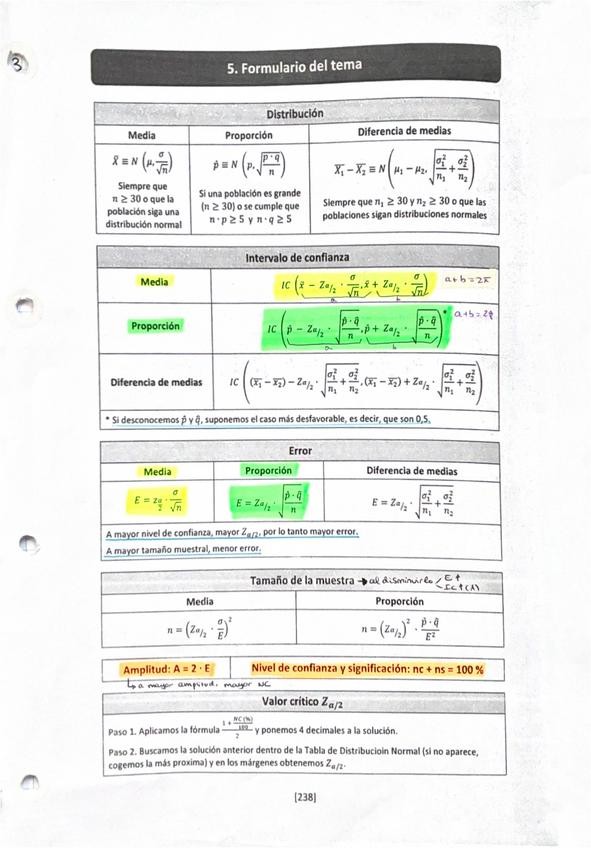 3
5. Formulario del tema
Distribución
Media
Proporción
Diferencia de medias
X̄ ≡ N (μ, σ/√n)
p̂ ≡ N (p, √(p · q / n))
X̄₁ − X̄₂ ≡ N (μ₁ − μ₂, √(σ₁²/n₁ + σ₂²/n₂))
Siempre que
n ≥ 30 o que la
población siga una
distribución normal
Si una población es grande
(n ≥ 30) o se cumple que
n · p ≥ 5 y n · q ≥ 5
Siempre que n₁ ≥ 30 y n₂ ≥ 30 o que las
poblaciones sigan distribuciones normales
Intervalo de confianza
Media
IC (x̄ − Zα/₂ · σ/√n, x̄ + Zα/₂ · σ/√n)
a b
a+b = 2x̄
Proporción
IC (p̂ − Zα/₂ · √(p̂ · q̂ / n), p̂ + Zα/₂ · √(p̂ · q̂ / n)) *
a b
a+b = 2p̂
Diferencia de medias
IC ((x̄₁ − x̄₂) − Zα/₂ · √(σ₁²/n₁ + σ₂²/n₂), (x̄₁ − x̄₂) + Zα/₂ · √(σ₁²/n₁ + σ₂²/n₂))
* Si desconocemos p̂ y q̂, suponemos el caso más desfavorable, es decir, que son 0,5.
Error
Media
Proporción
Diferencia de medias
E = Zα/2 · σ/√n
E = Zα/₂ · √(p̂ · q̂ / n)
E = Zα/₂ · √(σ₁²/n₁ + σ₂²/n₂)
A mayor nivel de confianza, mayor Zα/₂, por lo tanto mayor error.
A mayor tamaño muestral, menor error.
Tamaño de la muestra → al disminuirlo E↑
Ic↑(A)
Media
Proporción
n = (Zα/₂ · σ/E)²
n = (Zα/₂)² · p̂ · q̂ / E²
Amplitud: A = 2 · E
Nivel de confianza y significación: nc + ns = 100 %
↳ a mayor amplitud, mayor NC
Valor crítico Zα/₂
Paso 1. Aplicamos la fórmula (1 + NC(%)/100)/2 y ponemos 4 decimales a la solución.
Paso 2. Buscamos la solución anterior dentro de la Tabla de Distribucioin Normal (si no aparece,
cogemos la más proxima) y en los márgenes obtenemos Zα/₂.
[238]